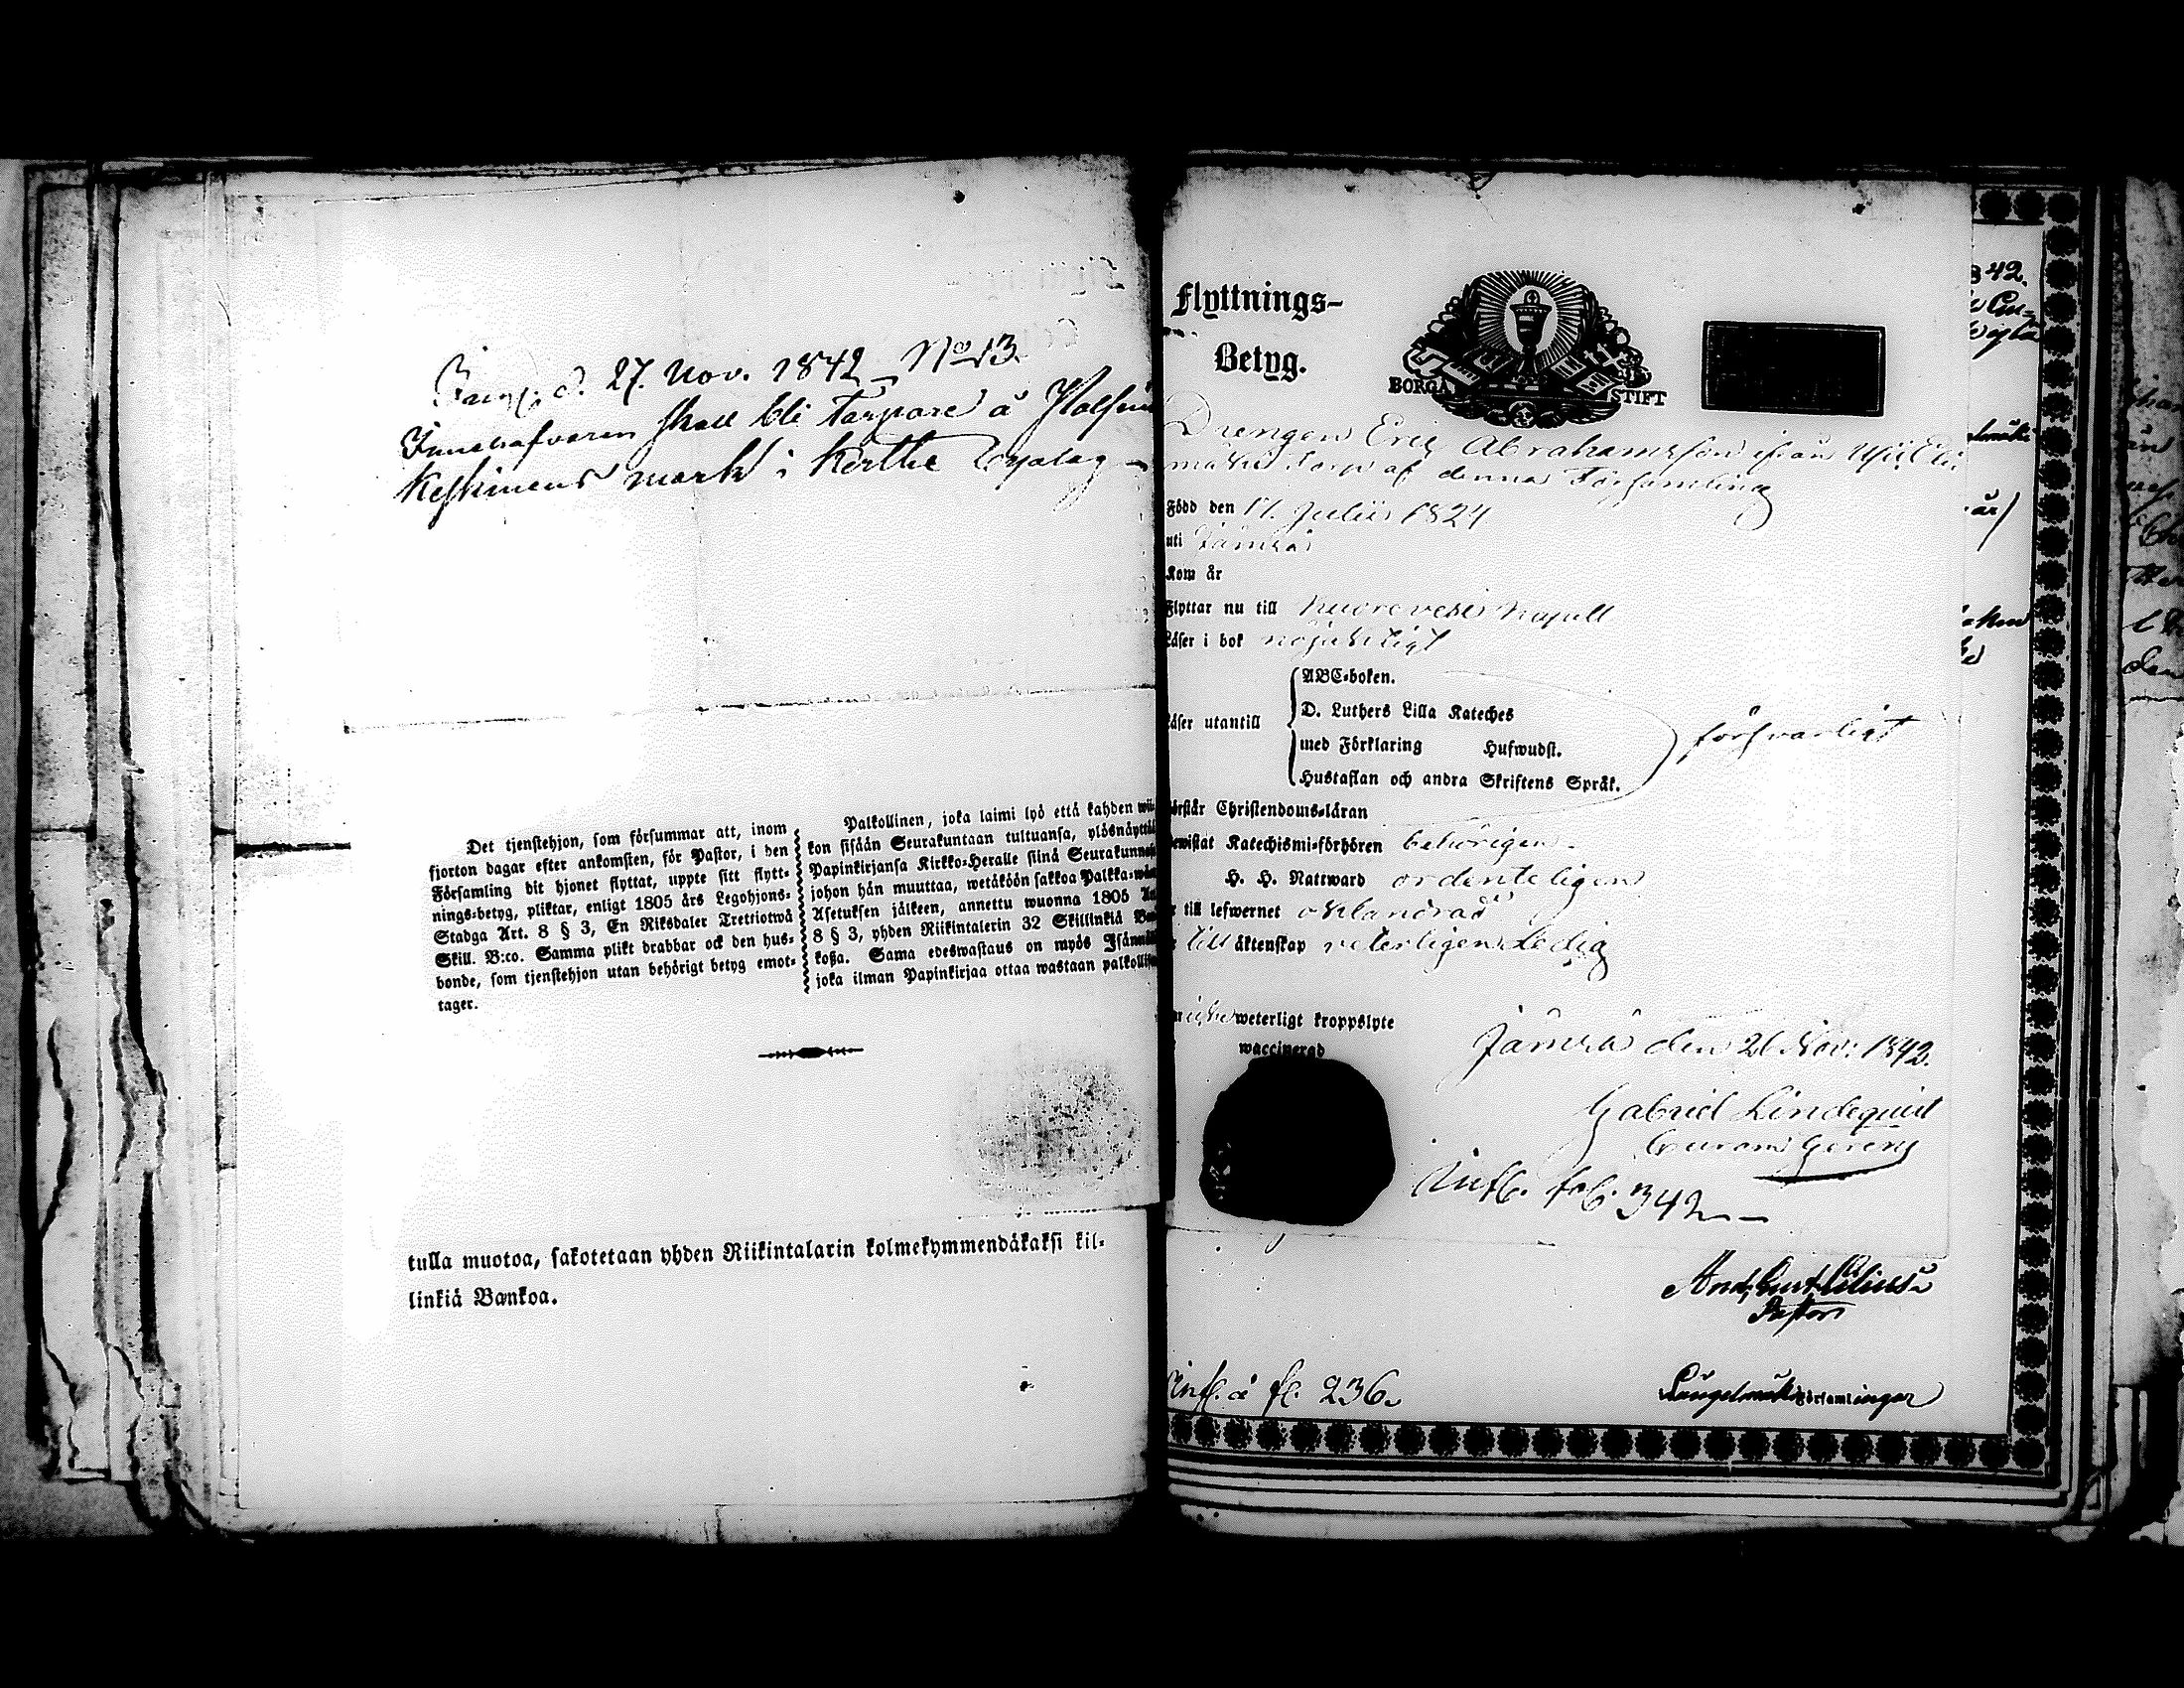 d. 27. Nov. 1842 No 13.
Innehafvaren skall bli Torpare å
Keskinens mark i Kertte Byalag
Det tjenstehjon, som försummar att, inom
fjorton dagar efter ankomsten, för Pastor, i den
Församling dit hjonet flyttat, uppte sitt flytt-
nings-betyg, pliktar, enligt 1805 års Legohjons-
Stadga Art. 8 § 3, En Riksdaler Trettiotwå
Skill. B:co. Samma plikt drabbar ock den hus-
bonde, som tjenstehjon utan behörigt betyg emot-
tager.
Palkollinen, joka laimi lyö että kahden wii-
kon sisään Seurakuntaan tultuansa, ylösnäyttää
Papinkirjansa Kirkko-Heralle siinä Seurakunnas
johon hän muuttaa, wetäköön sakkoa Palkka-wäen
Asetuksen jälkeen, annettu wuonna 1805 Ar
8 § 3, yhden Riikintalerin 32 Skillinkiä Ban
koßa. Sama edeswastaus on myös Isännällä
joka ilman Papinkirjaa ottaa wastaan palkollisen
tulla muotoa, sakotetaan yhden Riikintalarin kolmekymmendäkaksi kil-
linkiä Bankoa.
Flyttnings-
Betyg.
BORGÅ STIFT
Drengen Eric Abrahamsson ifrån
mäki torp af denna Församling
Född den 17. Julii 1824
uti Jämsä
Kom år
Flyttar nu till Kuorevesi Kapell
Läser i bok nöjaktigt
Läser utantill
ABC-boken.
D. Luthers Lilla Kateches
med Förklaring Hufwudst.
Hustaflan och andra Skriftens Språk.
försvarligt
förstår Christendoms-läran
bewistat Katechismi-förhören behörigen
H. H. Nattward ordenteligen
r till lefwernet oklandrad
till äktenskap veterligen Ledig
icke weterligt kroppslyte
waccinerad
Jämsä den 26 Nov: 1842.
Gabriel Lindequist
Curam Gerens
Infl. fol. 342
Pastor
Infl. å fl. 236.
Längelmäki Församlingar
42.